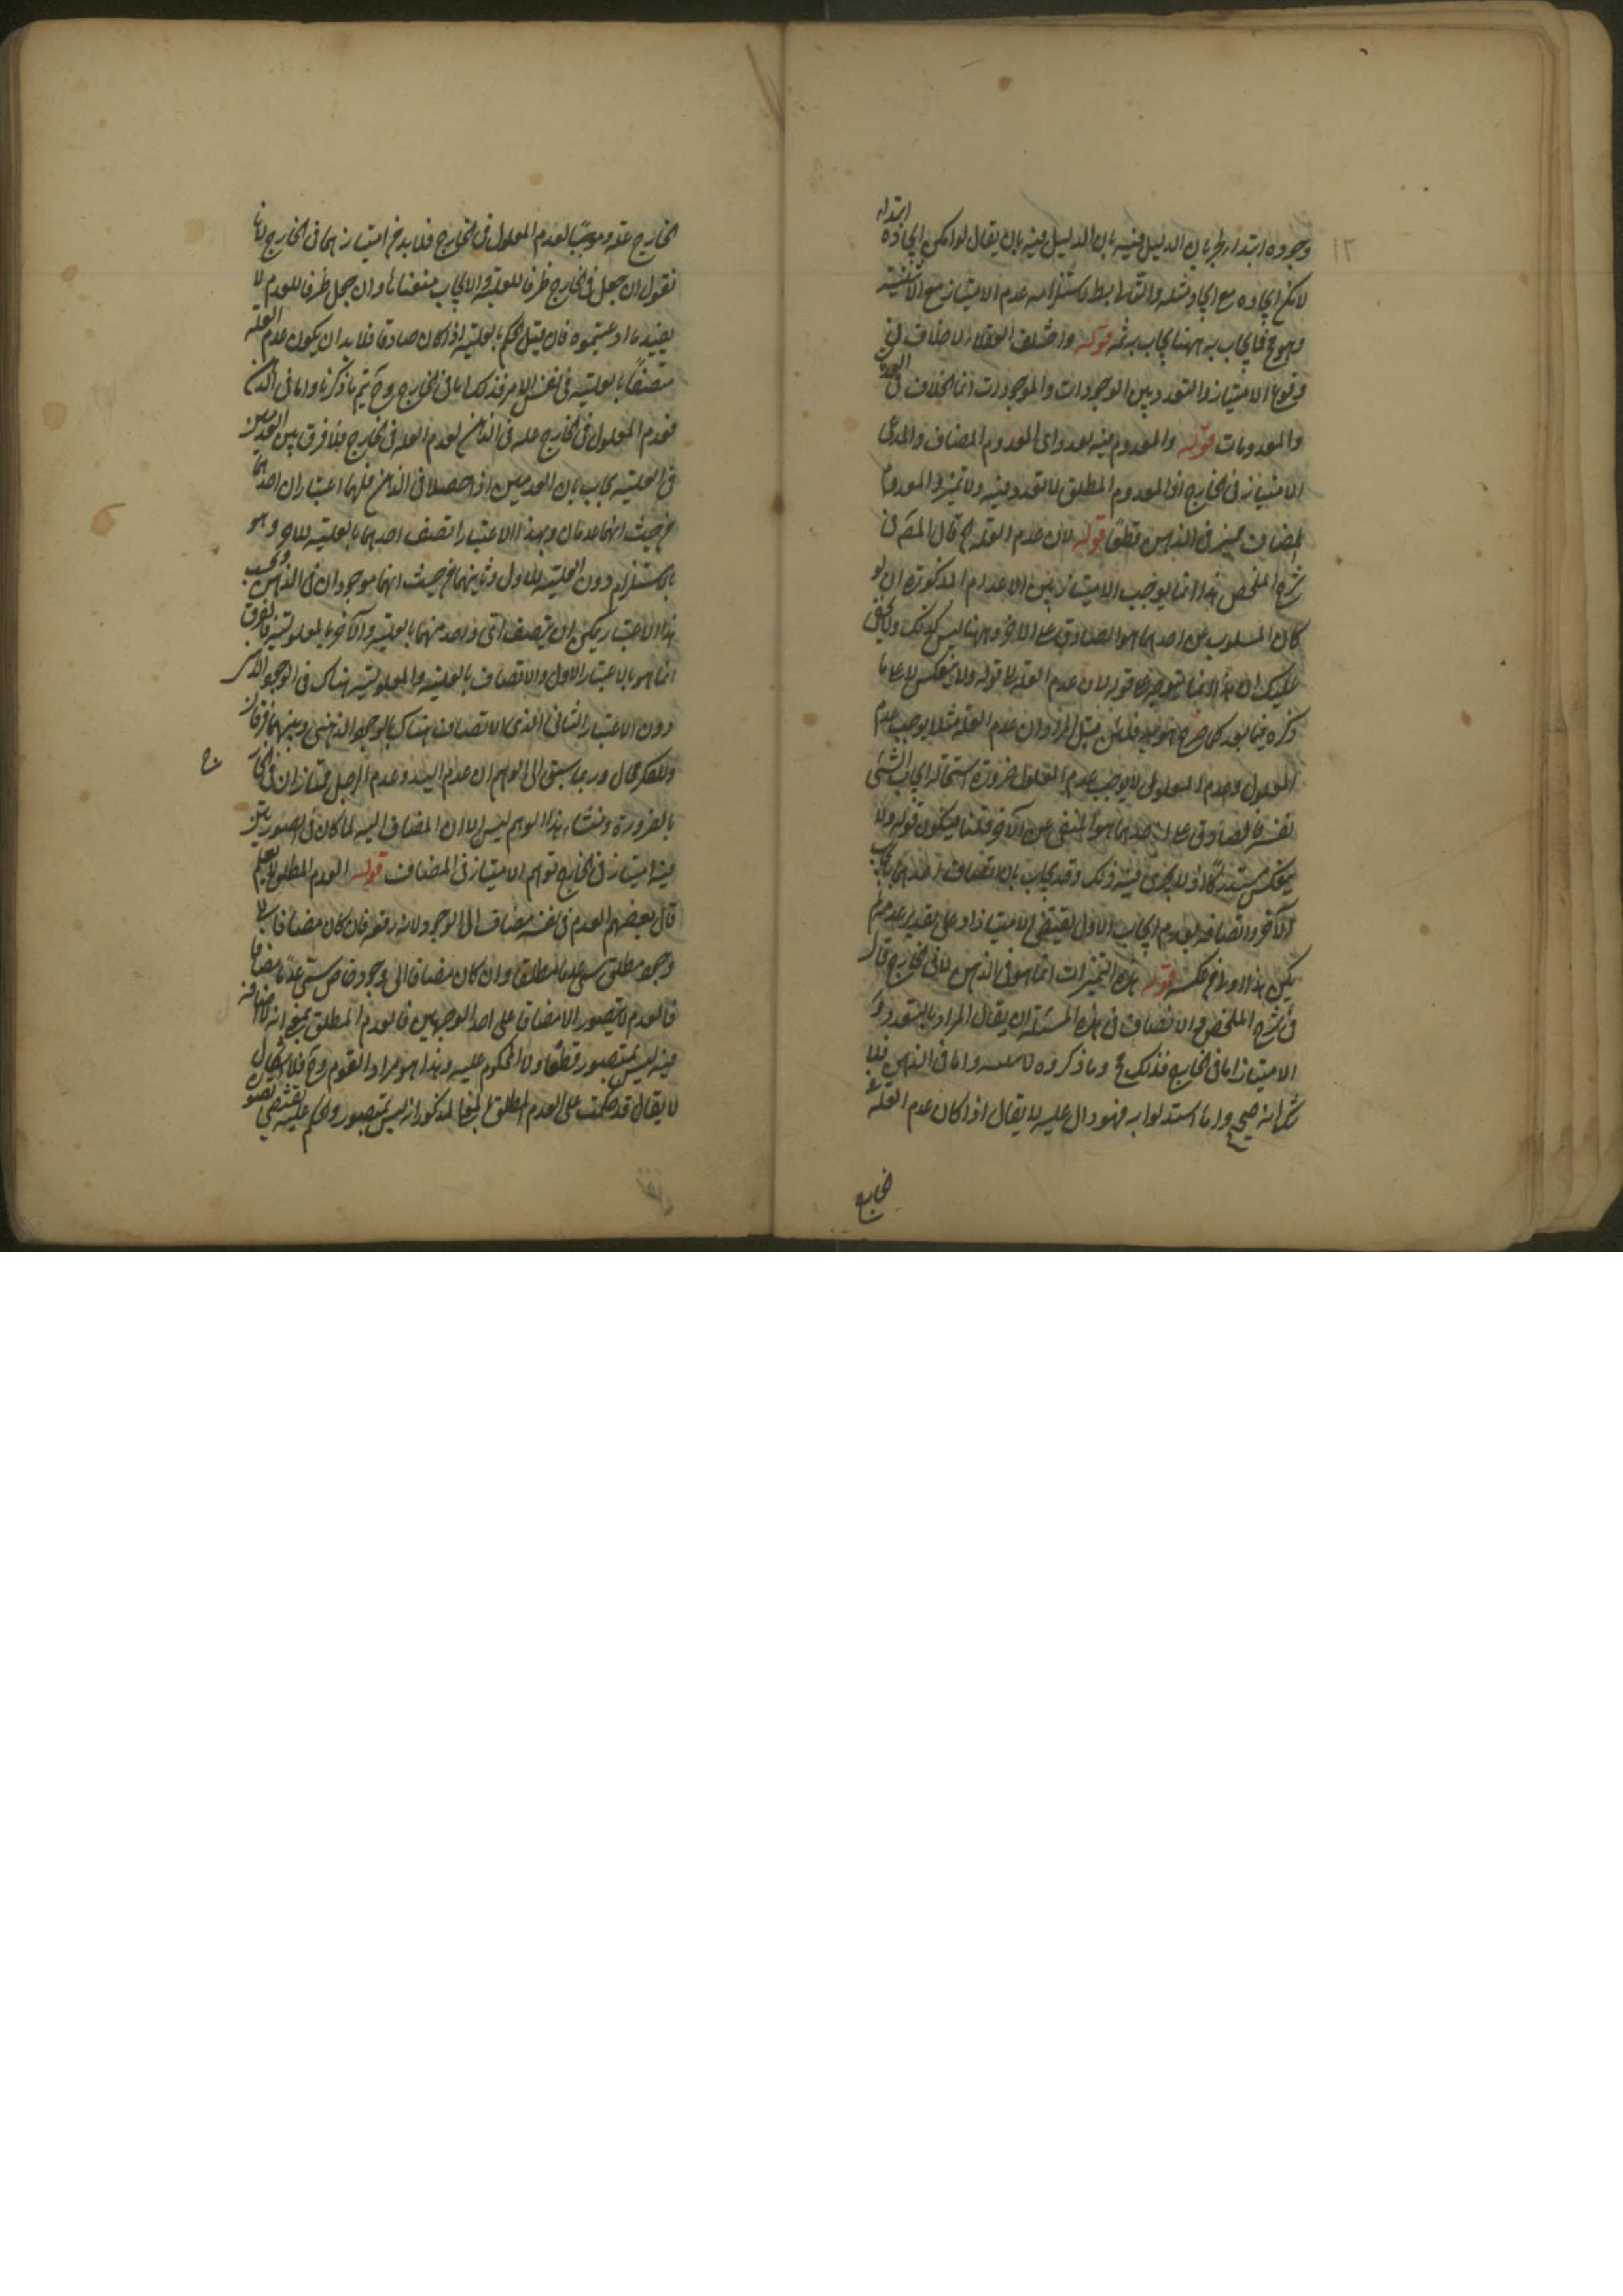 ١٢
وجوده ابتداء بجريان الدليل فيه بان الدليل فيه بان يقال لو امكن ايجاده ابتداء
لامكن ايجاده مع ايجاد مثله والتالى بط لاستلزامه عدم الامتياز مع الاثنينية
وهو مح فما يجاب به ههنا يجاب به ثمه قوله واختلف العقلاء لا خلاف فى
وقوع الامتياز والتعدد بين الوجودات والموجودات انما الخلاف فى العدمات
والمعدومات قوله والمعدوم فيه تعدد اى المعدوم المضاف والمدعى
الامتياز فى الخارج اذ المعدوم المطلق لا تعدد فيه ولا تميز والمعدوم
المضاف متميز فى الذهن قطعا قوله لان عدم العلة ح قال المصر فى
شرح الملخص هذا انما يوجب الامتياز بين الاعدام المذكورة ان لو
كان المسلوب عن احدهما هو الصادق على الاخر وههنا ليس كذلك ولا يخفى
عليك ان هذا انما يتوجه على قوله لان عدم العلة لا قوله ولا ينعكس لا على ما
ذكره فيما بعد كما صرح هو به فلئن قيل المراد ان عدم العلة مثلا يوجب عدم
المعلول وعدم المعلول لا يوجب عدم المعلول ضرورة استحالة ايجاب الشئ
نفسه فالصادق على احدهما هو المنفى عن الآخر قلنا فيكون قوله ولا
ينعكس مستدركا اذ لا يجرى فيه ذلك وقد يجاب بان اتصاف احدهما بايجاب
الآخر واتصافه بعدم ايجاب الاول يقتضى الامتياز وعلى تقدير عدمه لم
يكن هذا اولى من عكسه قوله هذه التميزات انما هو فى الذهن لا فى الخارج قال
فى شرح الملخص والانصاف فى هذه المسئلة ان يقال المراد بالتعدد و
الامتياز اما فى الخارج فذلك مح وما ذكروه لا يفيده واما فى الذهن فلا
شك انه صحيح واما استدلوا به فهو دال عليه لا يقال اذا كان عدم العلة فى
الخارج
الخارج علة وموجبا لعدم المعلول فى الخارج فلا بد من امتيازهما فى الخارج لانا
نقول ان جعل فى الخارج ظرفا للعلية والايجاب منعناها وان جعل ظرفا للعدم لا
يفيد ما ادعيتموه فان قيل الحكم بالعلية اذا كان صادقا فلا بد ان يكون عدم العلة
متصفا بالعلية فى نفس الامر فذلك اما فى الخارج وح يتم ما ذكرنا واما فى الذهن
فعدم المعلول فى الخارج علة فى الذهن لعدم العلة فى الخارج فلا فرق بين العدمين
فى العلية يجاب بان العدمين اذا حصلا فى الذهن فلهما اعتباران احدهما
من حيث انهما عدمان وبهذا الاعتبار اتصف احدهما بالعلية للاخر وهو
بالاستلزام دون العلية للاول وثانيهما من حيث انهما موجودان فى الذهن وبحسب
هذا الاعتبار يمكن ان يتصف اى واحد منهما بالعلية والآخر بالمعلولية فالفرق
انما هو بالاعتبار الاول والاتصاف بالعلية والمعلولية هناك فى الوجود الاثر
دون الاعتبار الثانى الذى الاتصاف هناك بالوجود الذهنى وبينهما فرقان
وللفكر مجال وربما يسبق الى الوهم ان عدم اليد وعدم الرجل ممتازان فى الخارج
بالضرورة ومنشاء هذا الوهم ليس الا ان المضاف اليه لما كان فى الصورتين
فيه امتياز فى الخارج توهم الامتياز فى المضاف قوله العدم المطلق لا يعلم
قال بعضهم العدم فى نفسه مضاف الى الوجود لانه رفعه فان كان مضافا الى
وجود مطلق سمى عدما مطلقا وان كان مضافا الى وجود خاص سمى عدما مضافا
فالعدم لا يتصور الا مضافا على احد الوجهين فالعدم المطلق بمعنى انه لا اضافة
فيه ليس بمتصور قطعا ولا المحكوم عليه وهذا هو مراد القوم وح فلا اشكال
لا يقال قد حكمت على العدم المطلق بالمعنى المذكور انه ليس بمتصور والحكم عليه يقتضى تصوره